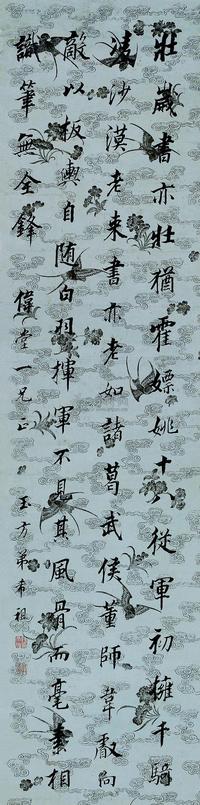 壯歲書亦壯猶霍嫖姚十八從軍初擁千騎
沙漠老来書亦老如諸葛武侯董師韋叡向
敵以板輿自随白羽揮軍不見其風骨而毫素相
識筆無全鋒 偉堂一兄正 玉方弟希祖